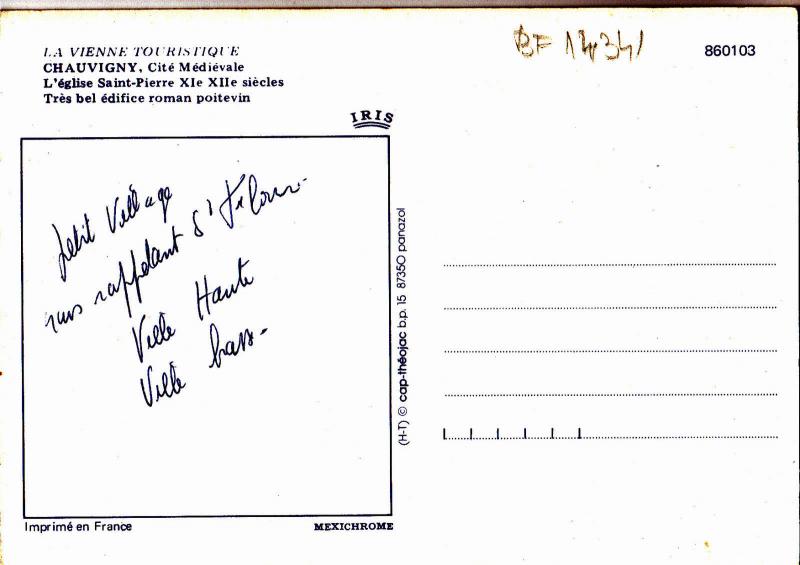 LA VIENNE TOURISTIQUE
CHAUVIGNY, Cité Médiévale
L'église Saint-Pierre XIe XIIe siècles
Très bel édifice roman poitevin
BF
860103
IRIS
petit Village
nous rappelant St Flour
Ville Haute
Ville basse
(H-T) © cap-théojac b.p. 15 87350 panazol
Imprimé en France
MEXICHROME